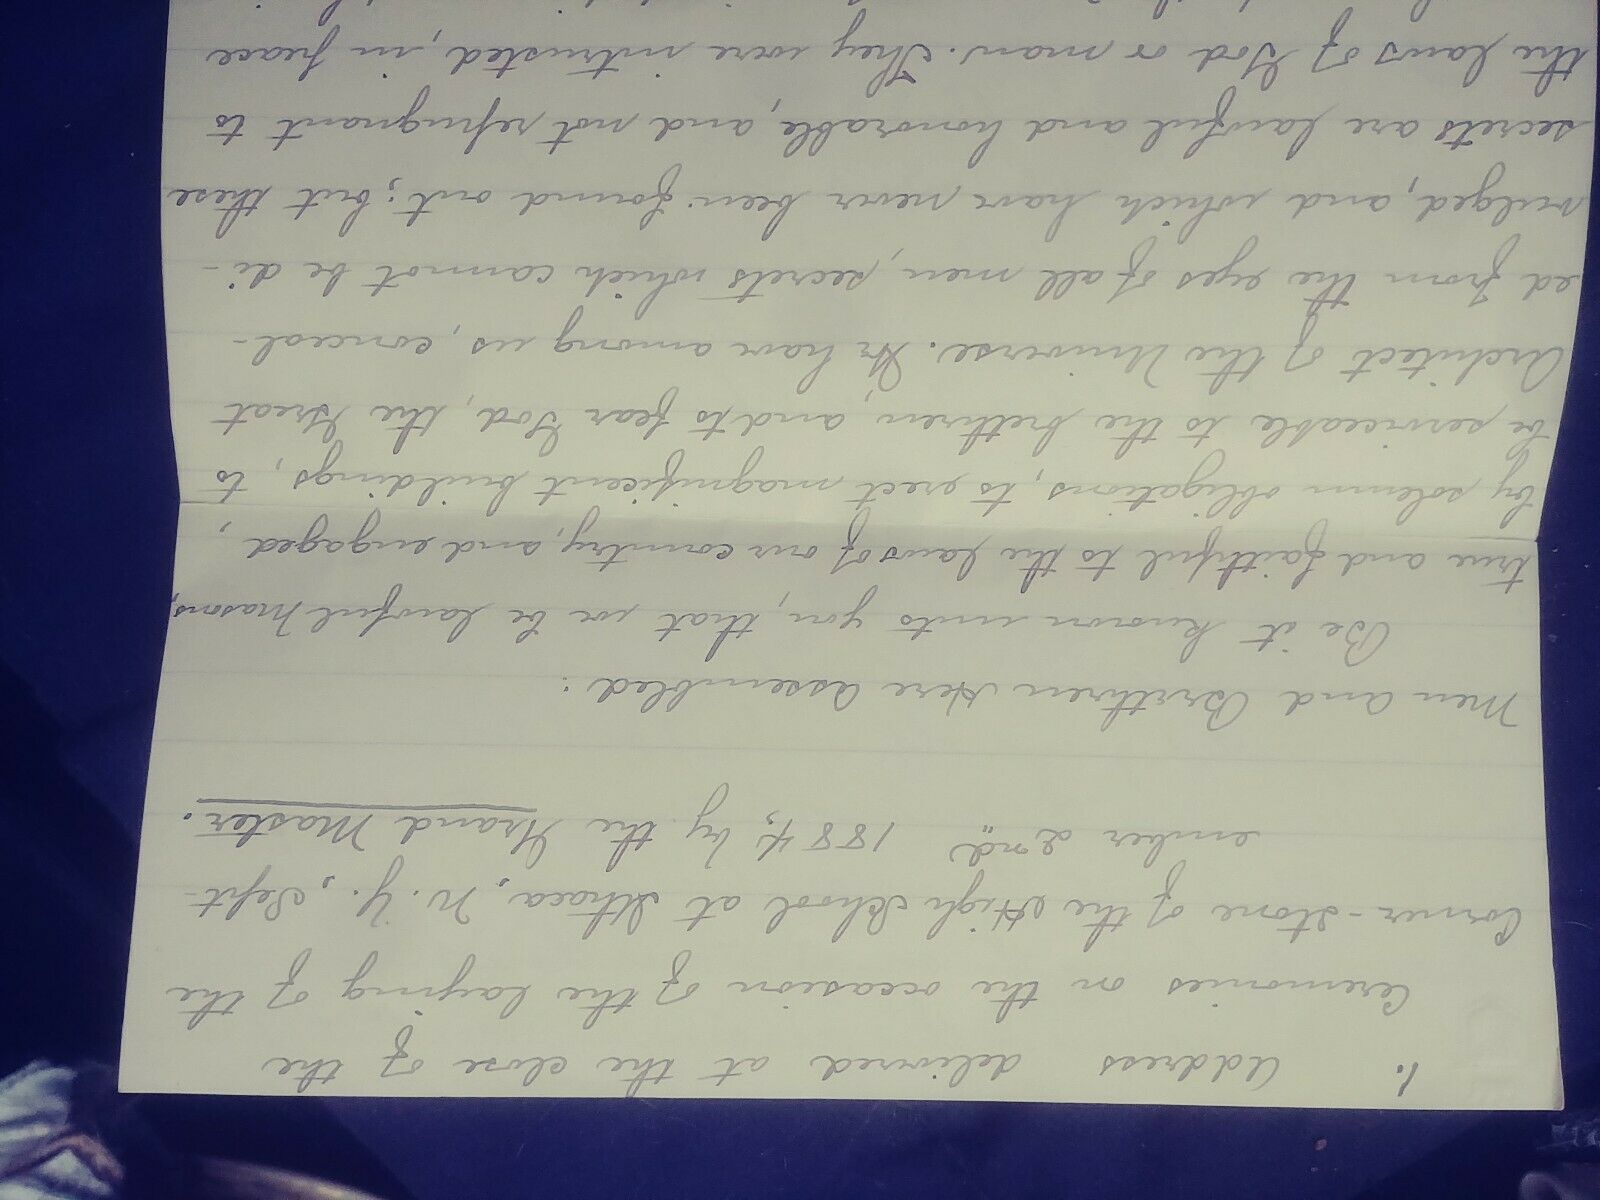 1. Address delivered at the close of the
Ceremonies on the occasion of the laying of the
Corner-stone of the High School at Ithaca, N. Y., Sept-
ember 2nd 1884, by the Grand Master.
Men and Brethren Here assembled:
Be it known unto you, that we be lawful Masons,
true and faithful to the laws of our country, and engaged,
by solemn obligations, to erect magnificent buildings, to
be serviceable to the brethren, and to fear God, the Great
Architect of the Universe. We have among us, conceal-
ed from the eyes of all men, secrets which cannot be di-
vulged, and which have never been found out; but these
secrets are lawful and honorable, and not repugnant to
the laws of God or man. They were intrusted, in peace